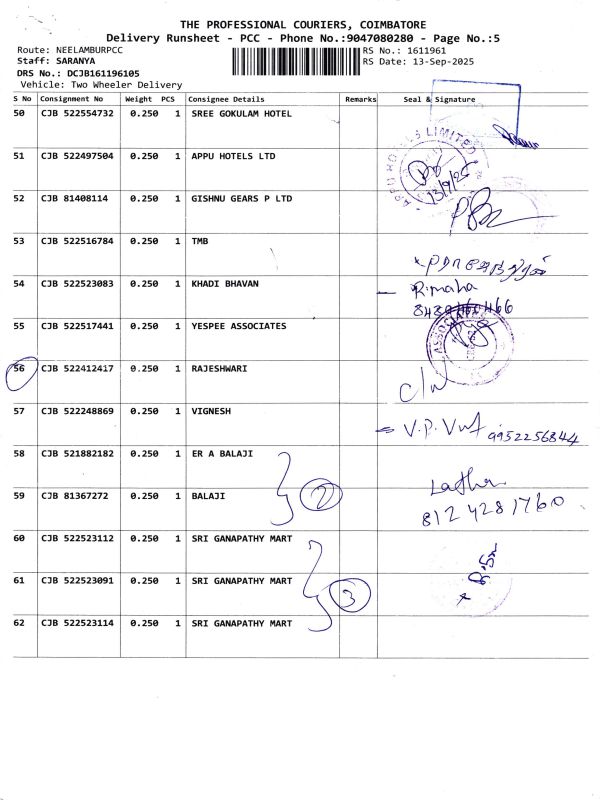 THE PROFESSIONAL COURIERS, COIMBATORE
Delivery Runsheet - PCC - Phone No.:9047080280 - Page No.:5
Route: NEELAMBURPCC
RS No.: 1611961
Staff: SARANYA
RS Date: 13-Sep-2025
DRS No.: DCJB161196105
Vehicle: Two Wheeler Delivery
S No Consignment No Weight PCS Consignee Details Remarks Seal & Signature
50 CJB 522554732 0.250 1 SREE GOKULAM HOTEL
51 CJB 522497504 0.250 1 APPU HOTELS LTD
APPU HOTELS LIMITED
13/9/25
52 CJB 81408114 0.250 1 GISHNU GEARS P LTD
53 CJB 522516784 0.250 1 TMB
54 CJB 522523083 0.250 1 KHADI BHAVAN
R.maha
55 CJB 522517441 0.250 1 YESPEE ASSOCIATES
56 CJB 522412417 0.250 1 RAJESHWARI
57 CJB 522248869 0.250 1 VIGNESH
9952256844
58 CJB 521882182 0.250 1 ER A BALAJI
Latha
59 CJB 81367272 0.250 1 BALAJI
2
8124281760
60 CJB 522523112 0.250 1 SRI GANAPATHY MART
61 CJB 522523091 0.250 1 SRI GANAPATHY MART
3
62 CJB 522523114 0.250 1 SRI GANAPATHY MART